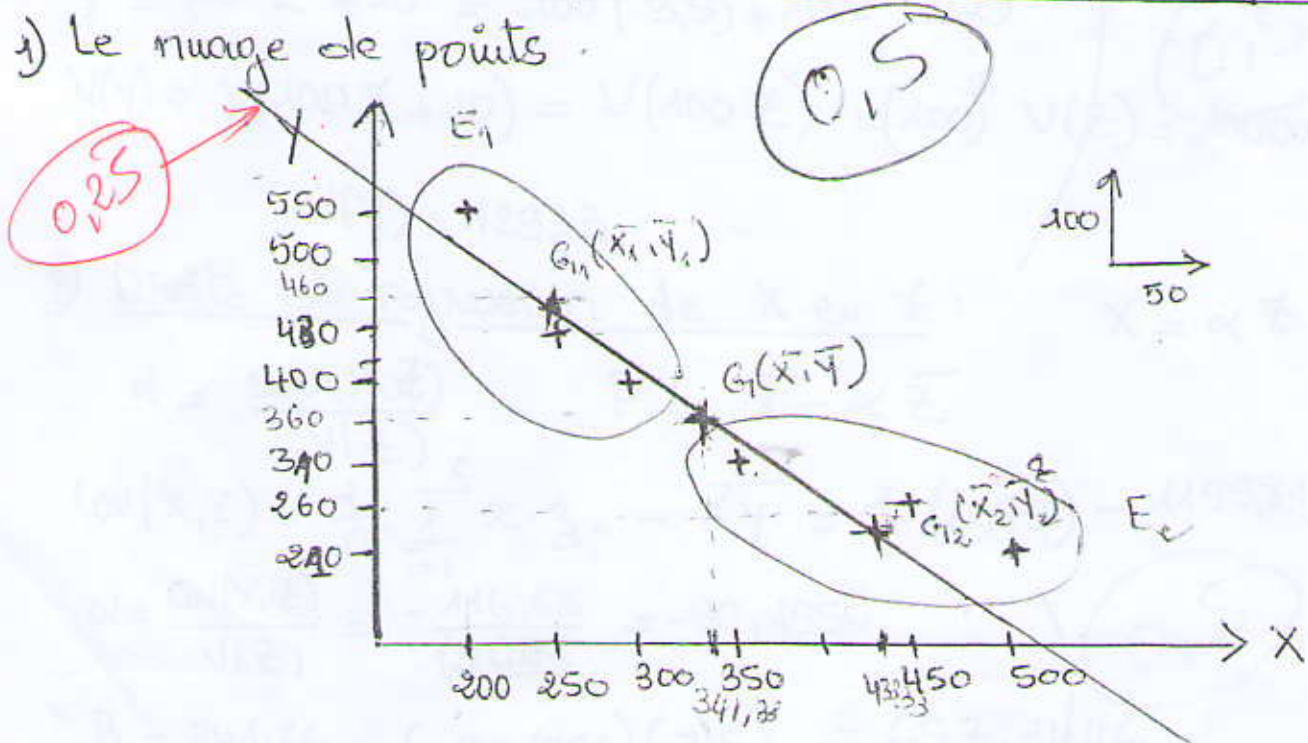 1) Le nuage de points.
0,5
0,25
Y
E1
550
500
460
400
360
310
260
210
G1(X̄1,Ȳ1)
G(X̄,Ȳ)
G2(X̄2,Ȳ2)
E2
100
50
200 250 300 350 450 500
341,33
433,33
X